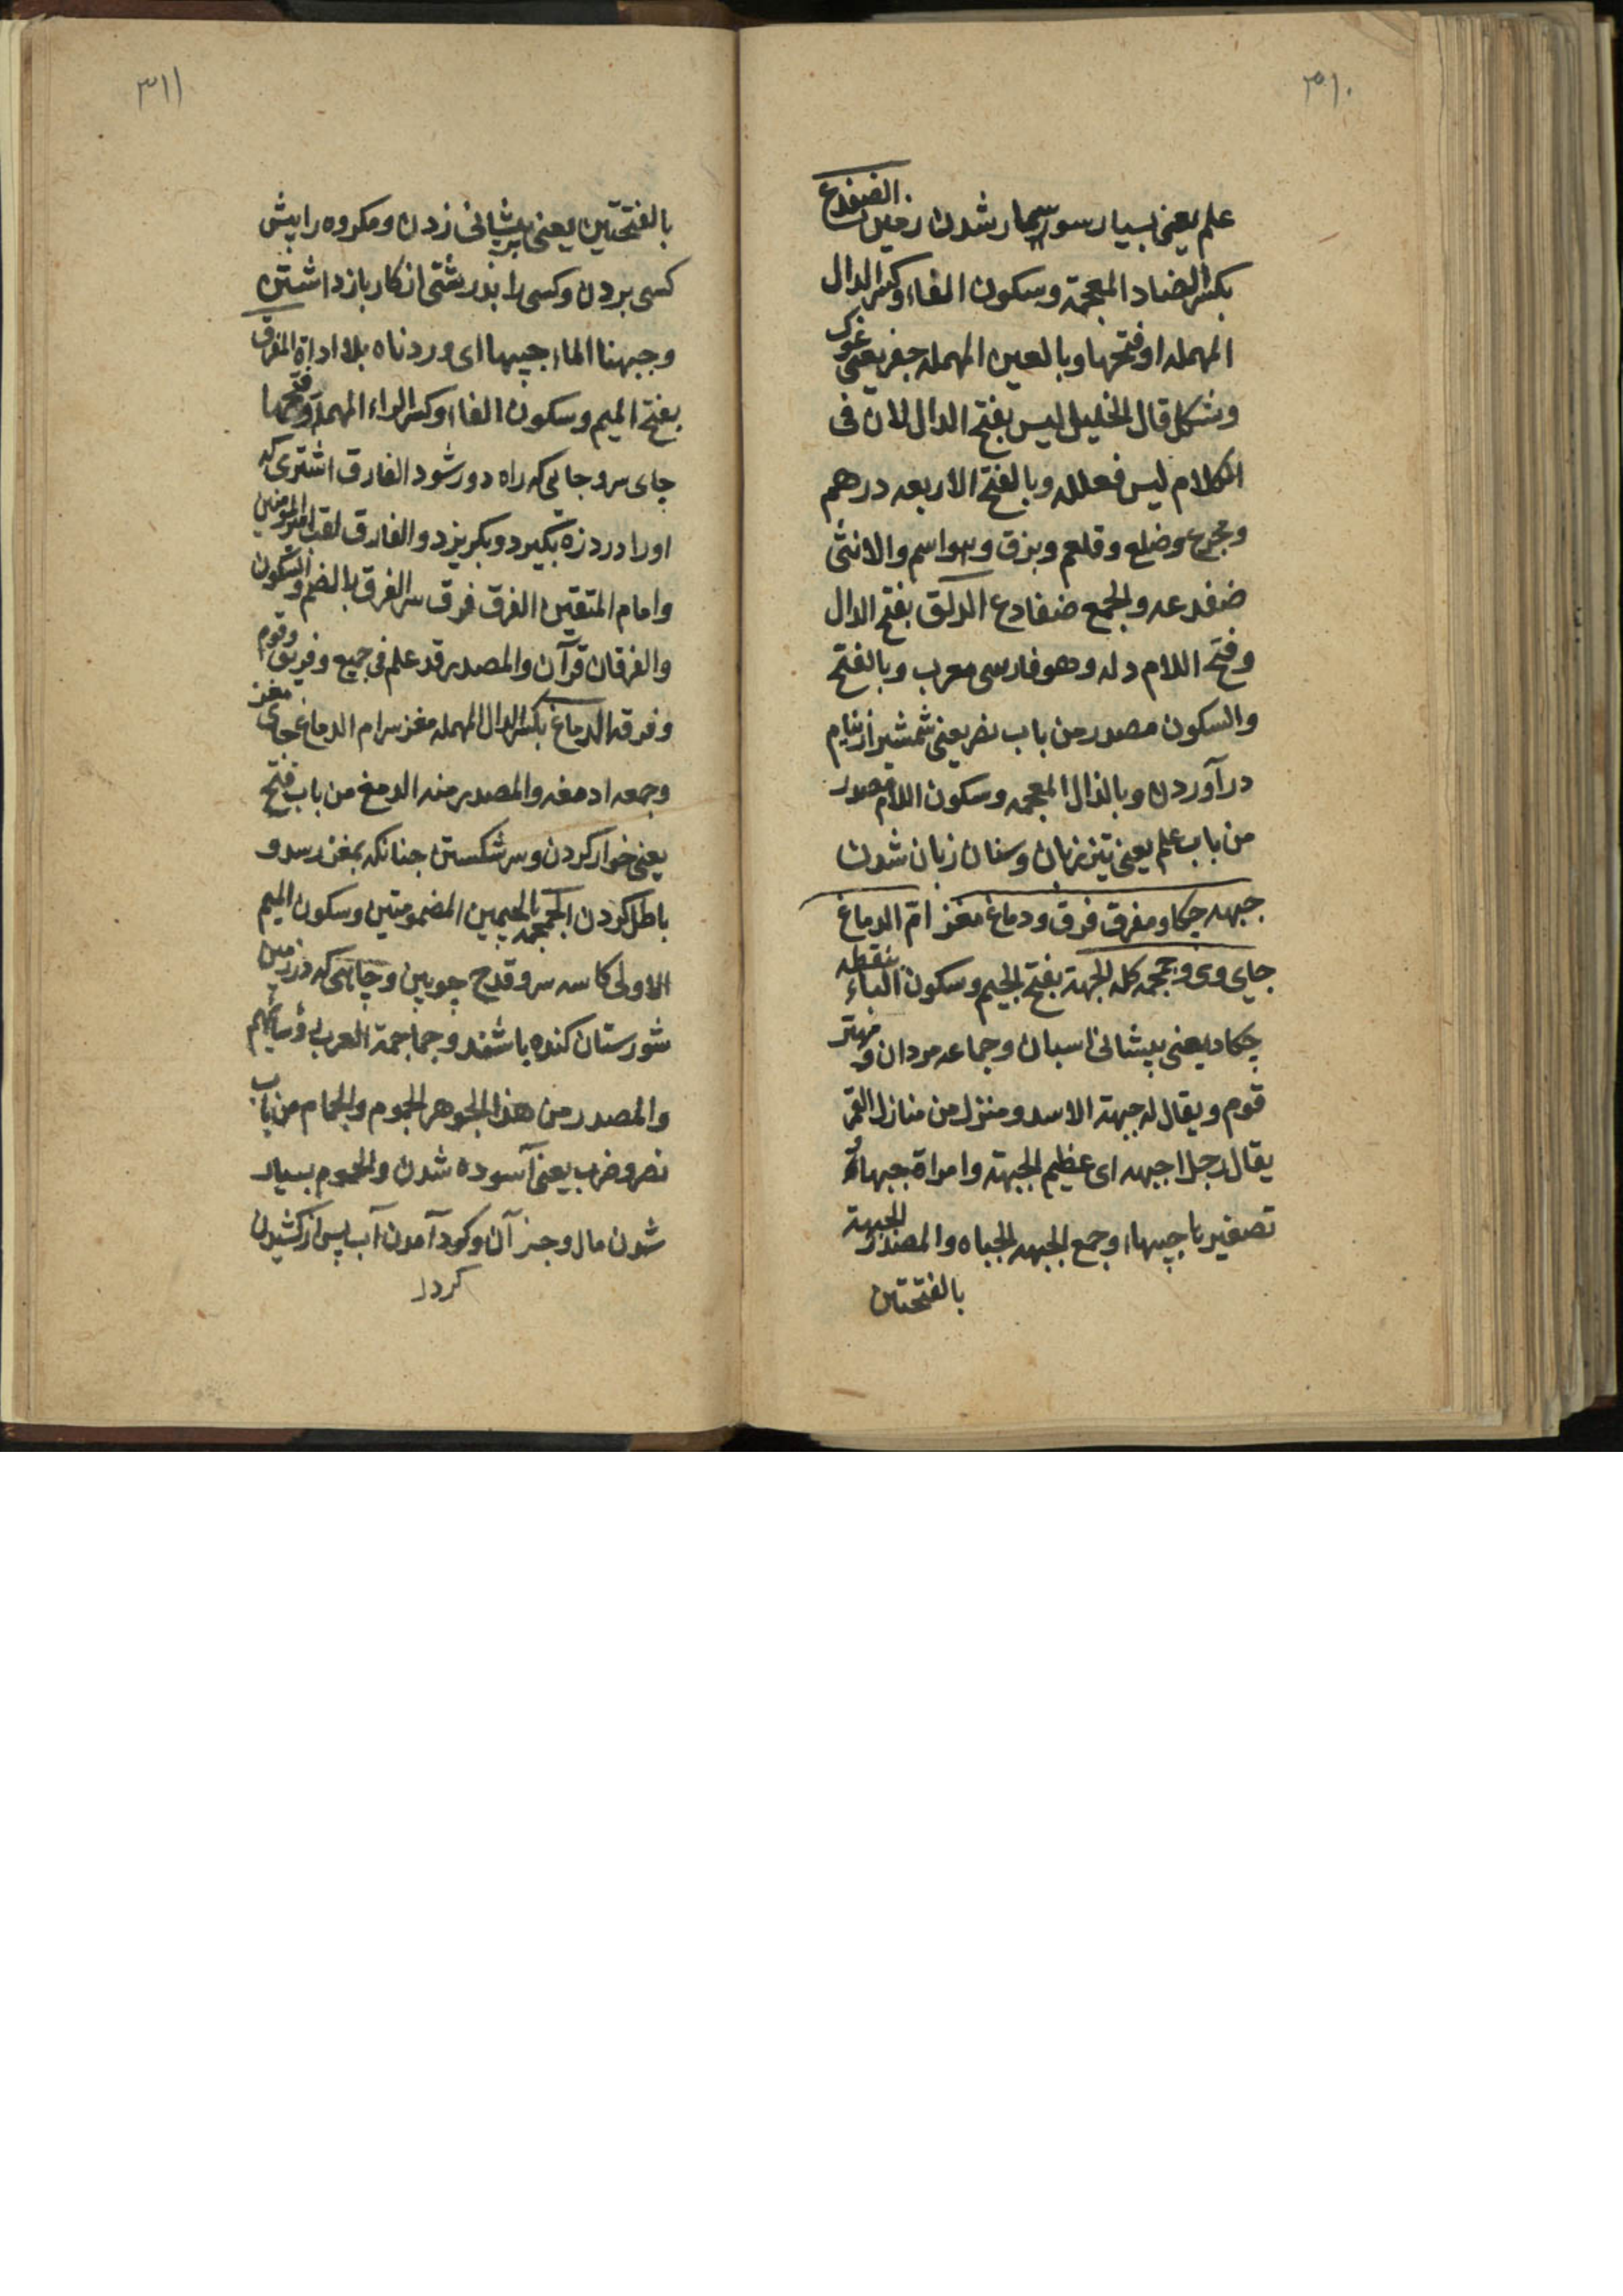 ۳۱۰
علم یعنی بسیار سوسمار شدن زمین الضفدع
بکسر الضاد المعجمة وسکون الفاء وکسر الدال
المهمله او فتحها وبالعین المهمله جغز یعنی غوک
وشکل قال الخلیل لیس بفتح الدال لان فی
الکلام لیس فعلل وبالفتح الا اربعه درهم
وضلع وقلعم واسم والانثی
ضفدعه والجمع ضفادع الدلق بفتح الدال
وفتح اللام دله وهو فارسی معرب وبالفتح
والسکون مصدر من باب نصر یعنی شمشیر از نیام
درآوردن وبالذال المعجمه وسکون اللام مصدر
من باب علم یعنی تیز زبان وسنان زبان شدن
جبهه چکاد ومفرق فرق ودماغ مغز ام الدماغ
جای وی وجمجمه کله الجبهة بفتح الجیم وسکون الباء بنقطه
چکاد یعنی پیشانی اسبان وجماعه مردان ومهتر
قوم ویقال له جبهة الاسد ومنزل من منازل القمر
یقال رجل اجبهه ای عظیم الجبهة وامراة جبهاء
تصغیرها جبیهاء وجمع الجبهه الجباه والمصدر الجبهة
بالفتحتین
۳۱۱
بالفتحتین یعنی بر پیشانی زدن ومکروه را پیش
کسی بردن وکسی را بدرشتی از کار باز داشتن
وجبهنا الماء جبها ای وردناه بلا اداة المفرق
بفتح المیم وسکون الفاء وکسر الراء المهملة وفتحها
جای سر وجایی که راه دور شود الفارق اشتری که
او را درد زه بگیرد وبگریزد والفارق لقب امیر المؤمنین
وامام المتقین الفرق فرق سر الفرق بالضم والسکون
والفرقان قرآن والمصدر قد علم فی جمیع وفریق وقوم
وفرقه الدماغ بکسر الدال المهمله مغز سر ام الدماغ جای مغز
وجمعه ادمغه والمصدر منه الدمغ من باب فتح
یعنی خوار کردن وسر شکستن چنانکه بمغز رسد و
باطل کردن الجمجمه بالجیمین المضمومتین وسکون المیم
الاولی کاسه سر وقدح چوبین وچاهی که در زمین
شورستان کنده باشند وجماجمة العرب رؤسائهم
والمصدر من هذا الجوهر الجموم والجمام من باب
نصر وضرب یعنی آسوده شدن والجموم بسیار
شدن مال وجز آن وکرد آمدن آب پس از کشیدن
کردا